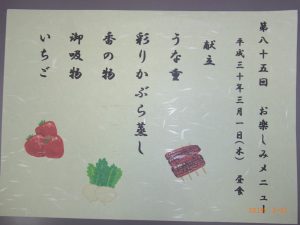 第八十五回　お楽しみメニュー
平成三十年三月一日(木)　昼食
献立
うな重
彩りかぶら蒸し
香の物
御吸物
いちご